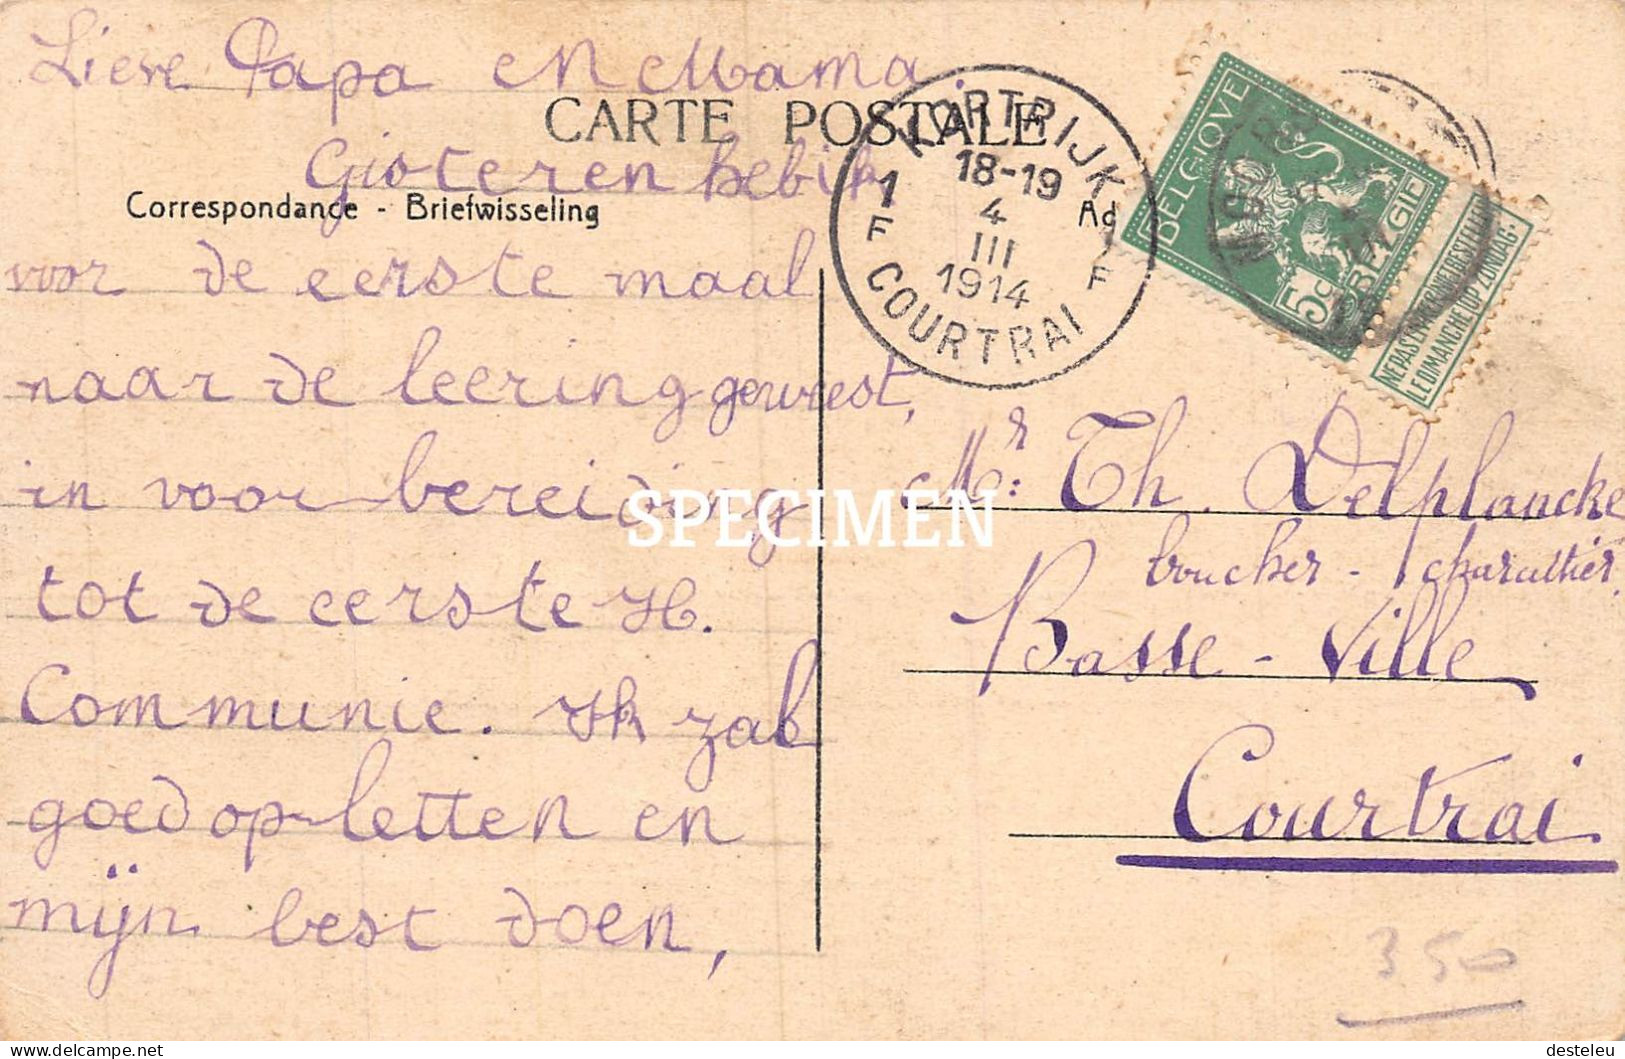 Lieve Papa en Mama.
CARTE POSTALE
Gisteren heb ik
Correspondance - Briefwisseling
voor de eerste maal
naar de leering geweest,
in voor bereiding
tot de eerste H.
Communie. Ik zal
goed op-letten en
mijn best doen,
KORTRIJK
18-19
4
III
1914
1
F
F
COURTRAI
BELGIQUE
BELGIË
5c
NE PAS LIVRER
LE DIMANCHE
OP ZONDAG.
Mr: Th. Delplancke
boucher - charcuthier
Basse-Ville
Courtrai
350
SPECIMEN
delcampe.net
desteleu